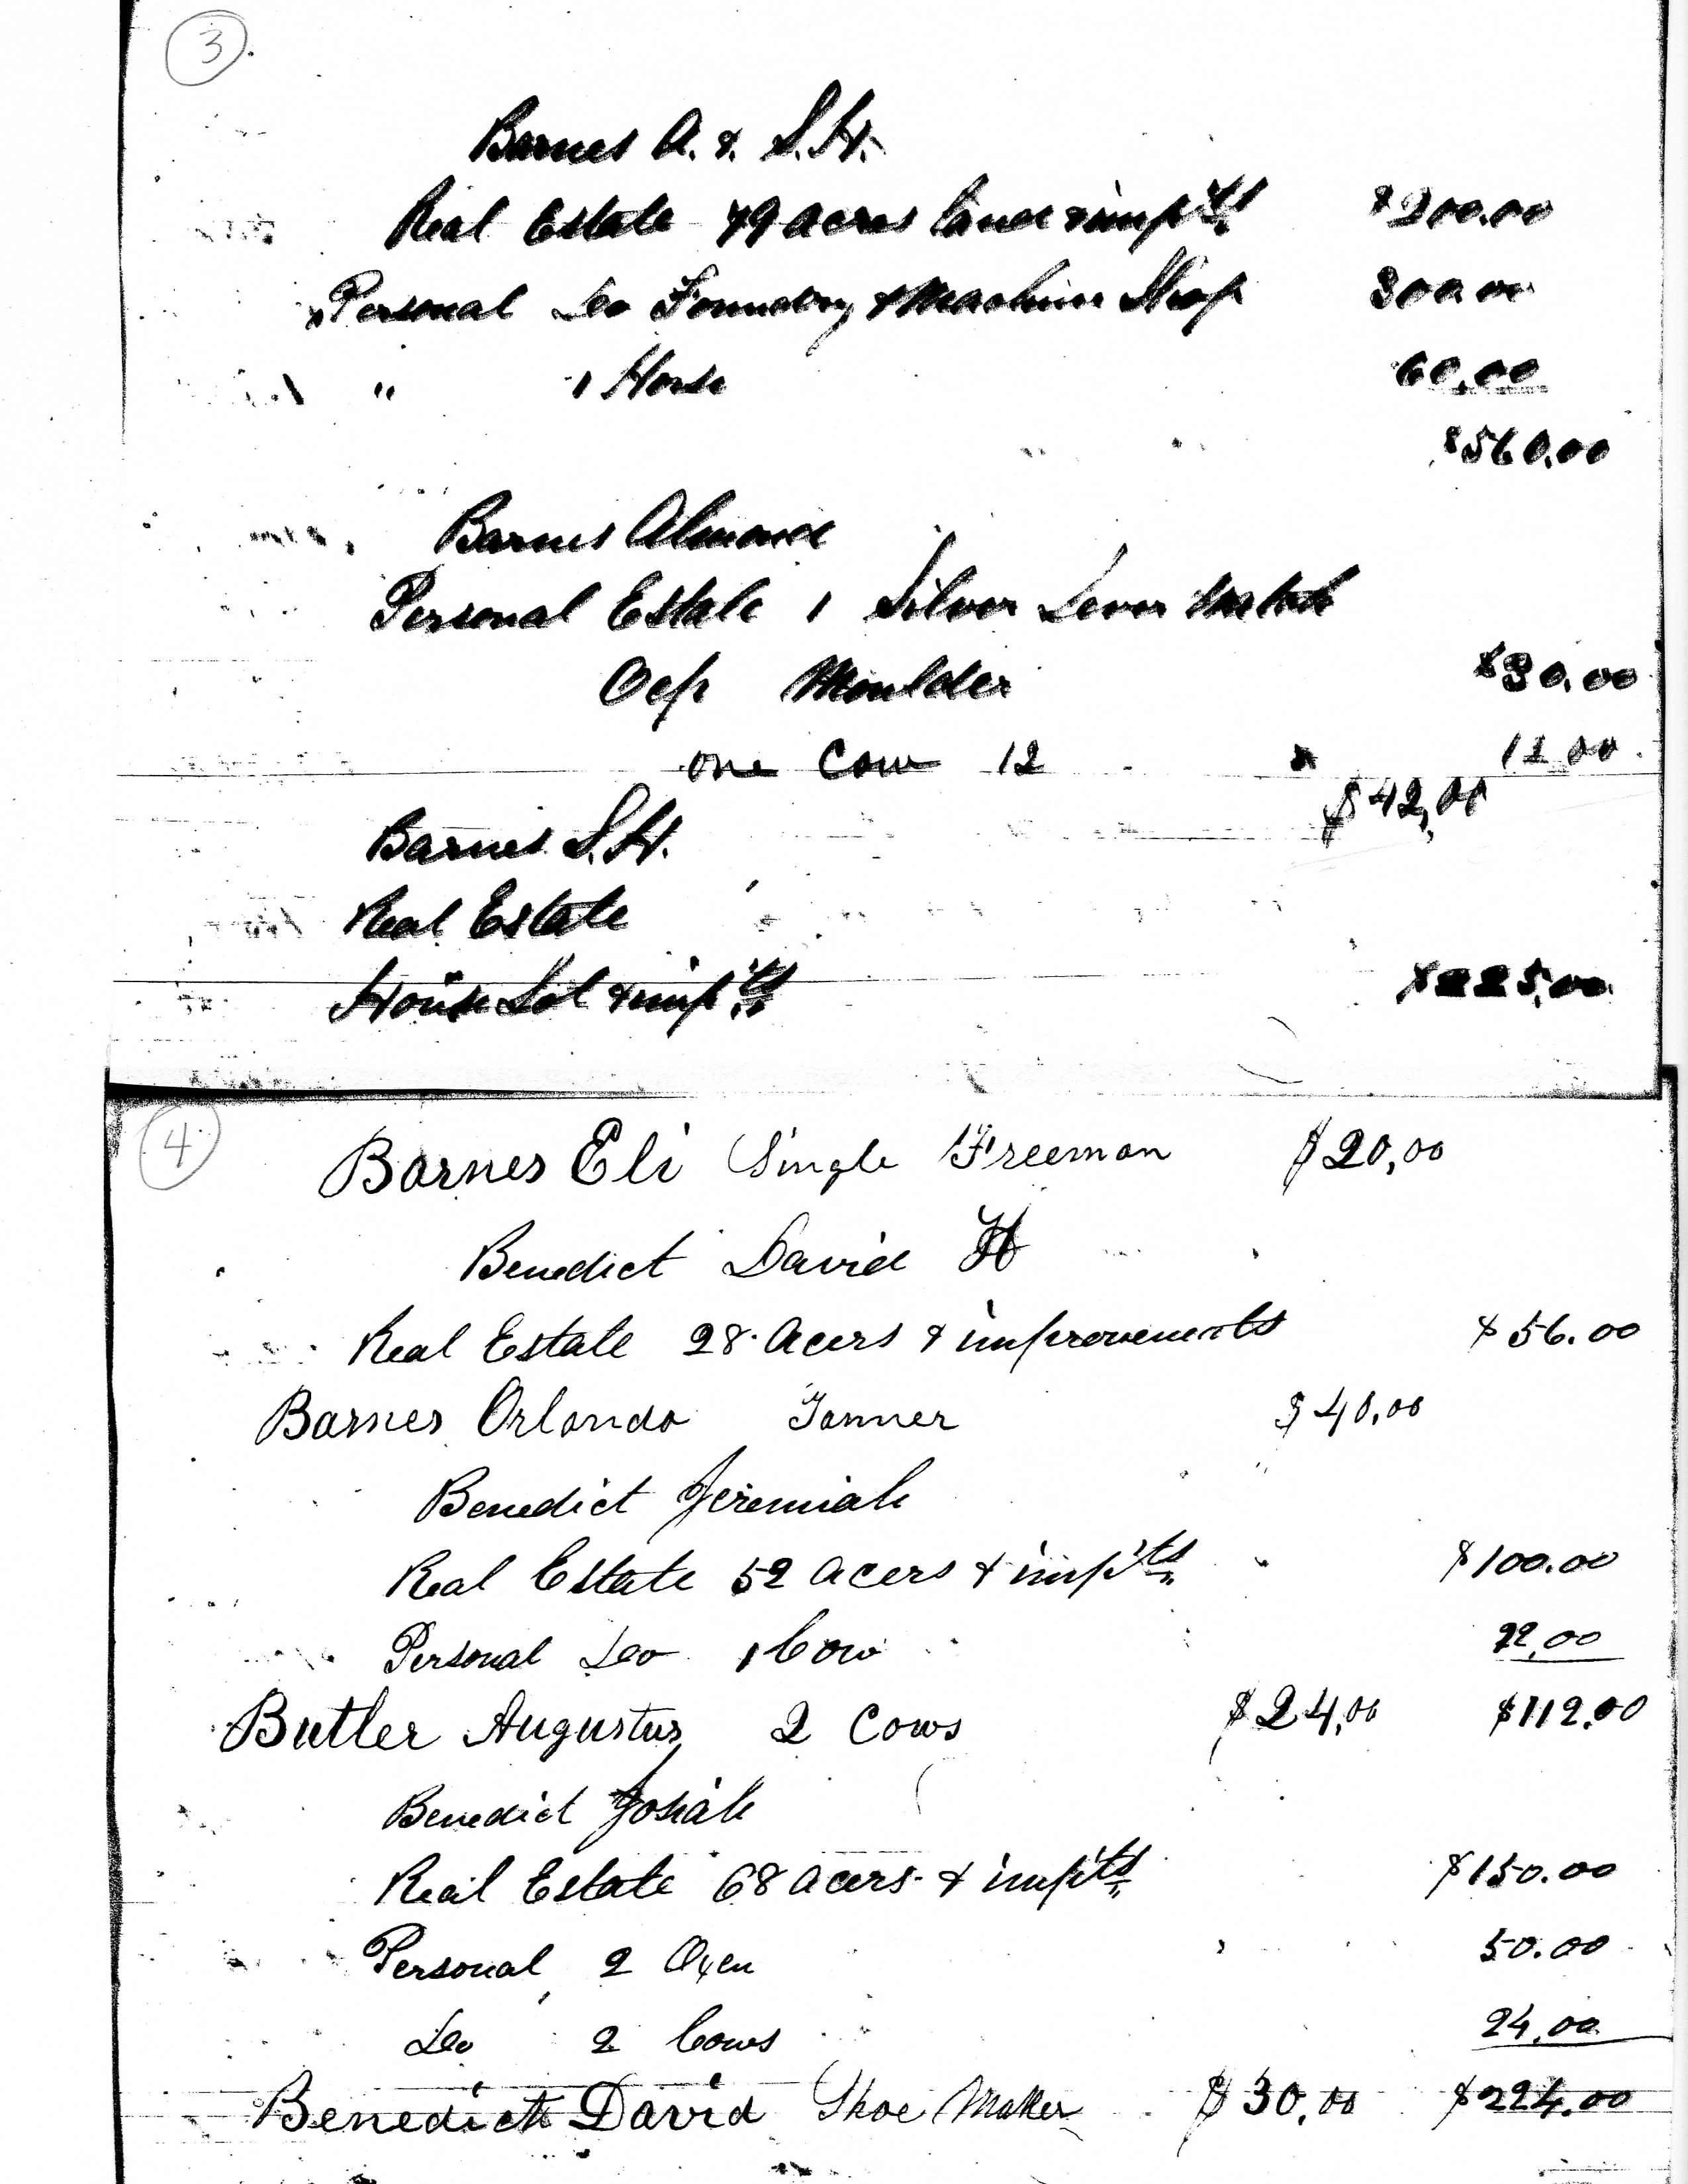 3.
Barnes A. & S. H.
Real Estate 49 acres land & imp'ts $200.00
Personal Do Foundry & Machine Shop 300.00
" 1 Horse 60.00
$560.00
Barnes Almond
Personal Estate 1 Silver Lever Watch
Ocp Moulder $30.00
one Cow 12 12 00
$42,00
Barnes S. H.
Real Estate
House Lot & imp'ts $225,00
4
Barnes Eli Single Freeman $20,00
Benedict David H
Real Estate 28 Acers & improvements $56.00
Barnes Orlando Tanner $40,00
Benedict Jeremiah
Real Estate 52 acers & imp'ts $100.00
Personal Do 1 Cow 12,00
Butler Augustus 2 Cows $24,00 $112.00
Benedict Josiah
Real Estate 68 acers & imp'ts $150.00
Personal 2 Oxen 50.00
Do 2 Cows 24,00
Benedict David Shoe Maker $30,00 $224.00